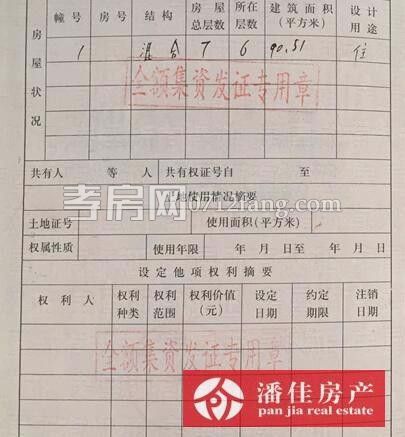 房屋状况
幢号 房号 结构 房屋总层数 所在层数 建筑面积（平方米） 设计用途
1 混合 7 6 90.51 住
全额集资发证专用章
共有人 等 人 共有权证号自 至
土地使用情况摘要
孝房网 0712fang.com
土地证号 使用面积（平方米）
权属性质 使用年限 年 月 日至 年 月 日
设定他项权利摘要
权利人 权利种类 权利范围 权利价值（元） 设定日期 约定期限 注销日期
全额集资发证专用章
潘佳房产
pan jia real estate